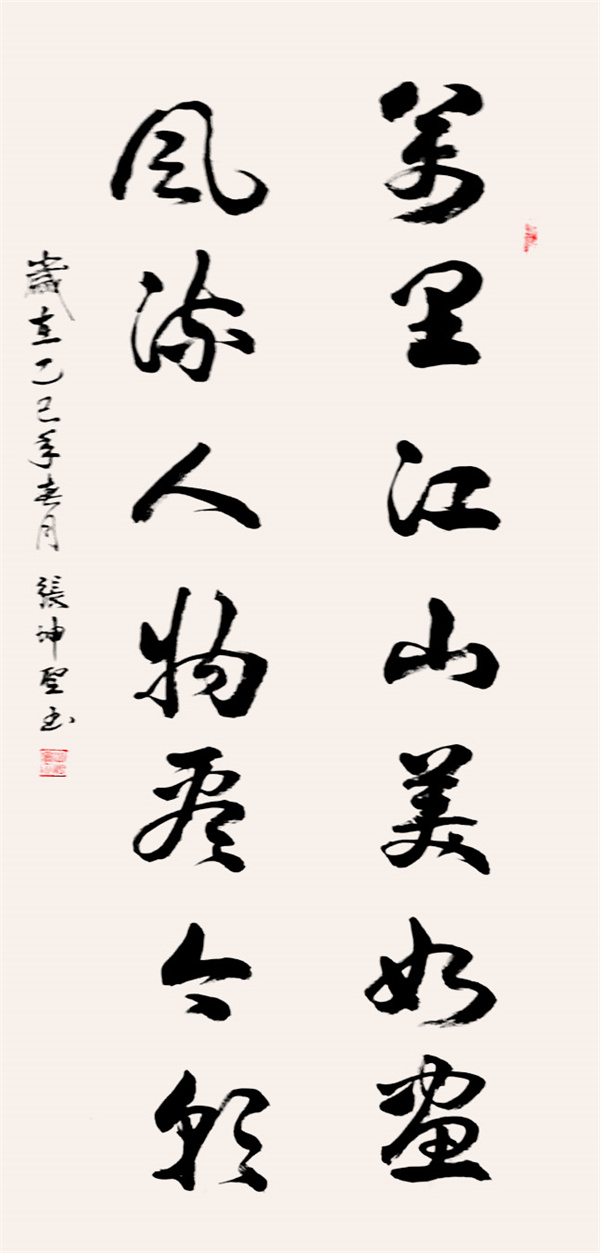 萬里江山美如畫
風流人物看今朝
歲在乙巳年春月 張坤聖書